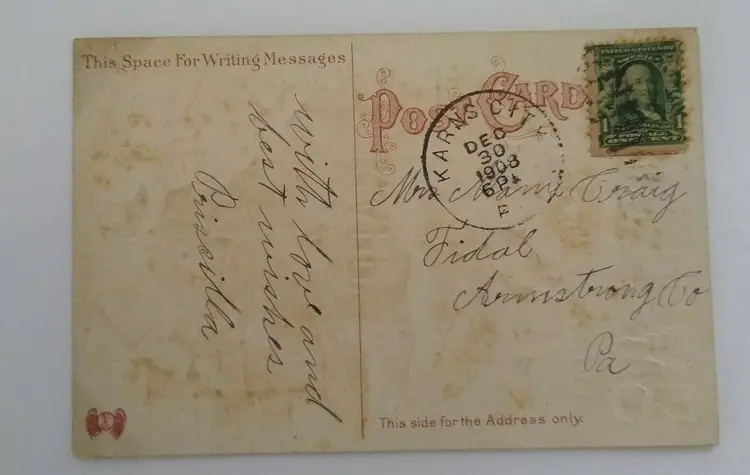 This Space For Writing Messages
with love and
best wishes
Priscilla
POST CARD
UNITED STATES OF
AMERICA
1
POSTAGE
ONE CENT
KARNS CITY
DEC
30
1908
6P
Craig
Tidal
Armstrong Co
Pa
This side for the Address only.